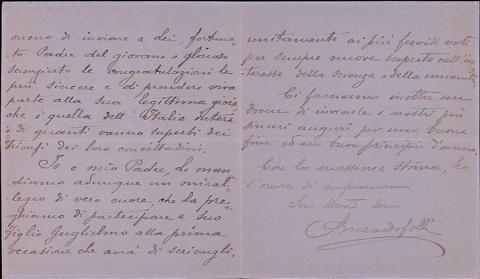 meno di inviare a Lei, fortuna-
to Padre del giovane e glorioso
scienziato le congratulazioni le
più sincere e di prendere viva
parte alla sua legittima gioia
che è quella dell'Italia intera
e di quanti vanno superbi dei
trionfi dei loro concittadini.
Io e mio Padre, Le man-
diamo adunque un miral-
legro di vero cuore, che La pre-
ghiamo di partecipare a Suo
figlio Guglielmo alla prima
occasione che avrà di scrivergli,
unitamente ai più fervidi voti
per sempre nuove scoperte nell'in-
teresse della scienza e della umanità.
Ci facciamo inoltre un
dovere di inviarle i nostri più
sinceri auguri per una buona
fine ed un buon principio d'anno.
Con la massima stima, ho
l'onore di confermarmi
Suo Devmo
Riccardo Folli